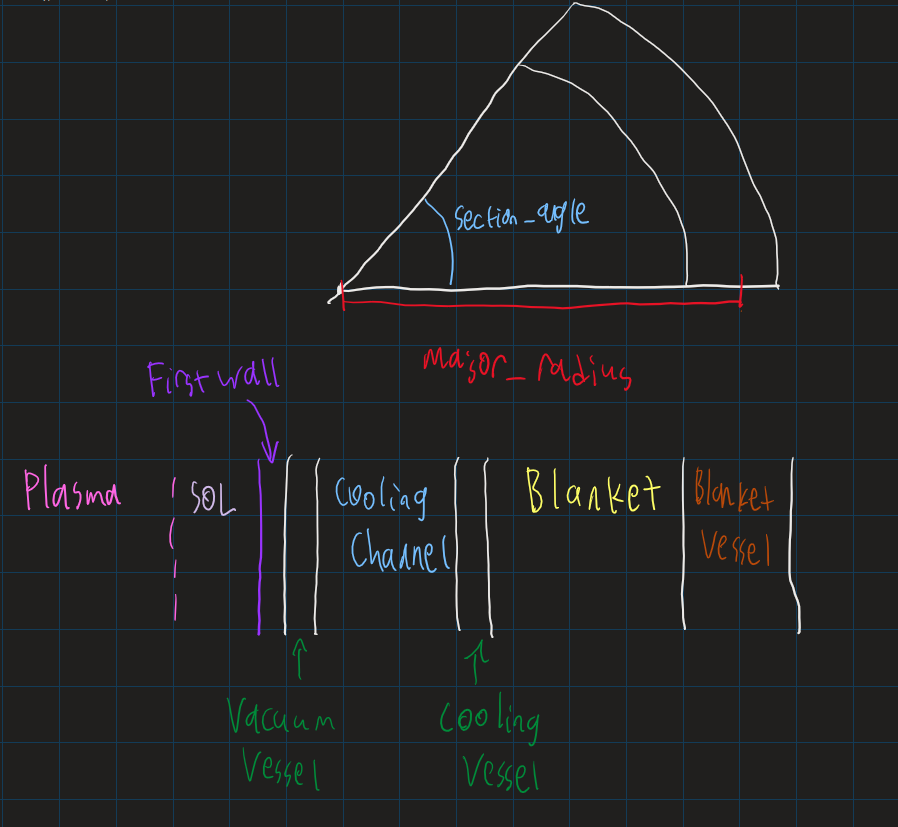 section_angle
major_radius
First wall
Plasma
SOL
Cooling
Channel
Blanket
Blanket
Vessel
Vacuum
Vessel
Cooling
Vessel